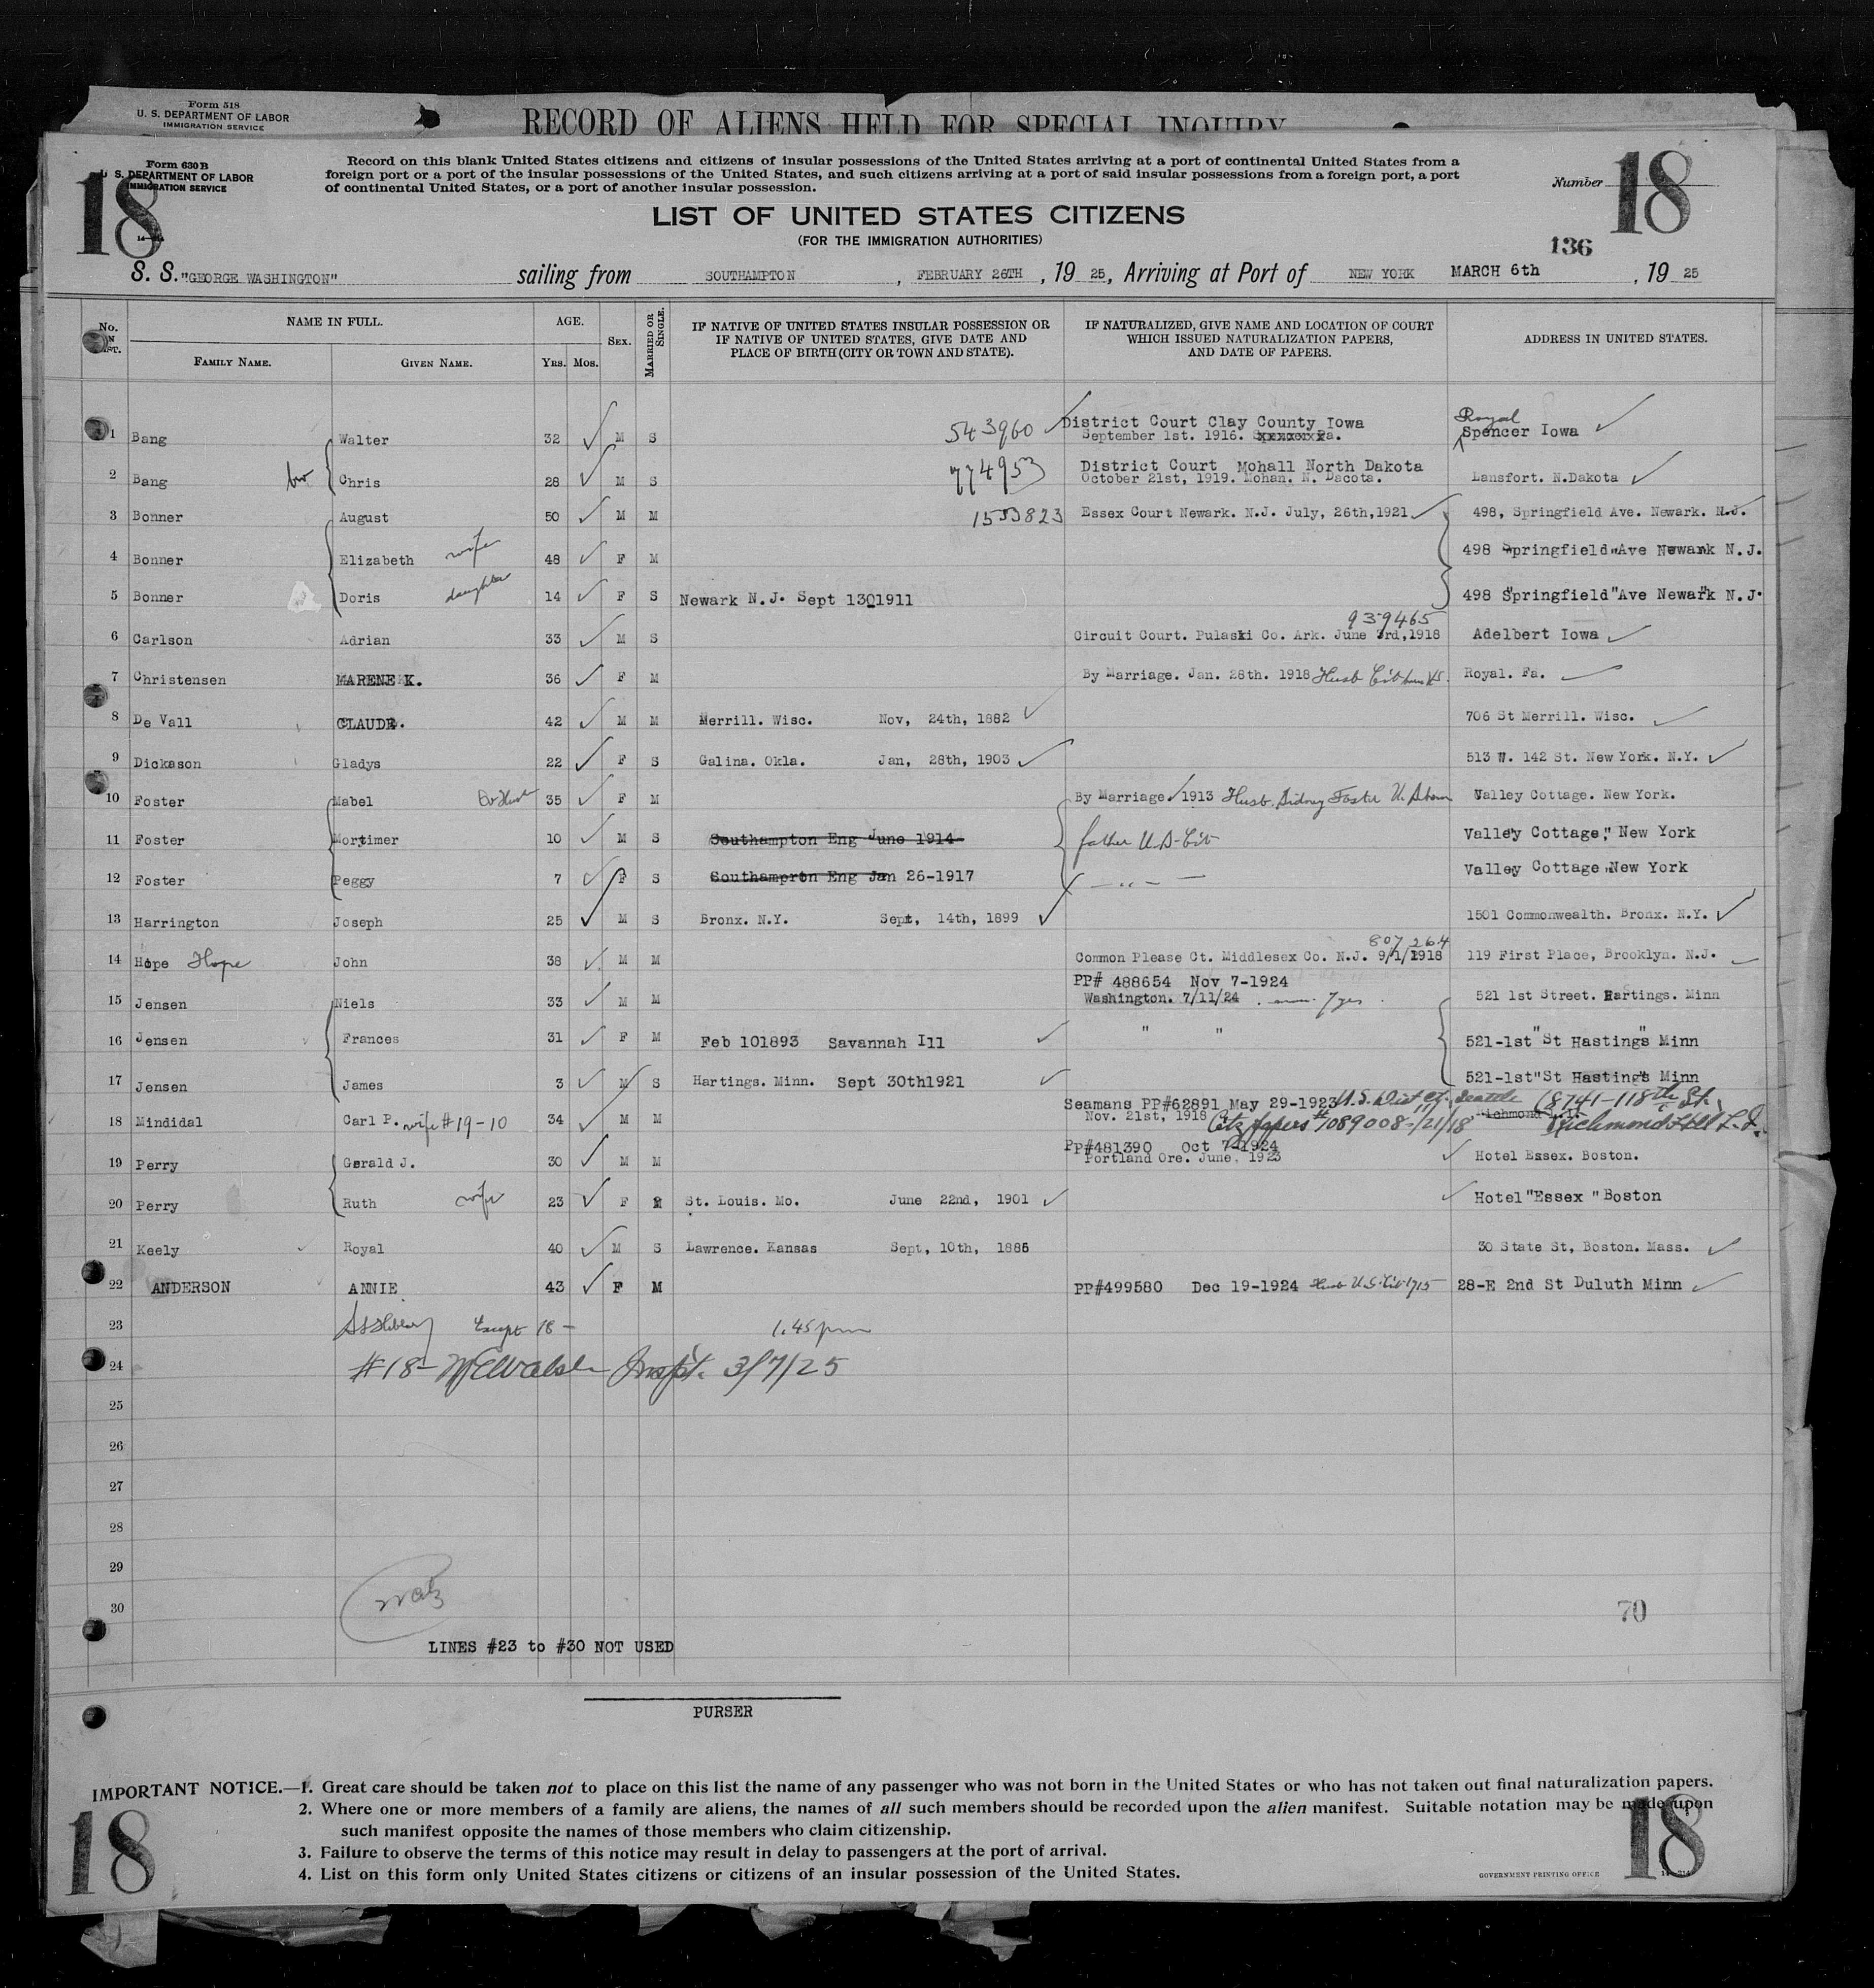 Form 518
U. S. DEPARTMENT OF LABOR
IMMIGRATION SERVICE
RECORD OF ALIENS HELD FOR SPECIAL INQUIRY
Form 630 B
U. S. DEPARTMENT OF LABOR
IMMIGRATION SERVICE
18
Record on this blank United States citizens and citizens of insular possessions of the United States arriving at a port of continental United States from a
foreign port or a port of the insular possessions of the United States, and such citizens arriving at a port of said insular possessions from a foreign port, a port
of continental United States, or a port of another insular possession.
Number 18
LIST OF UNITED STATES CITIZENS
(FOR THE IMMIGRATION AUTHORITIES)
136
S. S. "GEORGE WASHINGTON" sailing from SOUTHAMPTON , FEBRUARY 26TH , 19 25, Arriving at Port of NEW YORK MARCH 6th , 19 25
No. NAME IN FULL. AGE. SEX. MARRIED OR SINGLE. IF NATIVE OF UNITED STATES INSULAR POSSESSION OR IF NATIVE OF UNITED STATES, GIVE DATE AND PLACE OF BIRTH (CITY OR TOWN AND STATE). IF NATURALIZED, GIVE NAME AND LOCATION OF COURT WHICH ISSUED NATURALIZATION PAPERS, AND DATE OF PAPERS. ADDRESS IN UNITED STATES.
FAMILY NAME. GIVEN NAME. YRS. MOS.
1 Bang Walter 32 M S 543960 District Court Clay County Iowa September 1st. 1916. Royal Spencer Iowa
2 Bang bro Chris 28 M S 774953 District Court Mohall North Dakota October 21st, 1919. Mohan. N. Dacota. Lansfort. N.Dakota
3 Bonner August 50 M M 1533823 Essex Court Newark. N.J. July, 26th,1921 498, Springfield Ave. Newark. N.J.
4 Bonner Elizabeth wife 48 F M 498 Springfield Ave Newark N.J.
5 Bonner Doris daughter 14 F S Newark N.J. Sept 13 1911 498 Springfield Ave Newark N.J.
6 Carlson Adrian 33 M S 939465 Circuit Court. Pulaski Co. Ark. June 3rd,1918 Adelbert Iowa
7 Christensen MARENE K. 36 F M By Marriage. Jan. 28th. 1918 Husb Cit Royal. Fa.
8 De Vall CLAUDE. 42 M M Merrill. Wisc. Nov, 24th, 1882 706 St Merrill. Wisc.
9 Dickason Gladys 22 F S Galina. Okla. Jan, 28th, 1903 513 W. 142 St. New York. N.Y.
10 Foster Mabel 35 F M By Marriage 1913 Husb. Sidney Foster Valley Cottage. New York.
11 Foster Mortimer 10 M S Southampton Eng June 1914 father U.S. Cit Valley Cottage, New York
12 Foster Peggy 7 F S Southampton Eng Jan 26-1917 — " — — Valley Cottage New York
13 Harrington Joseph 25 M S Bronx. N.Y. Sept, 14th, 1899 1501 Commonwealth. Bronx. N.Y.
14 Hope Hope John 38 M M 807264 Common Please Ct. Middlesex Co. N.J. 9/1/1918 119 First Place, Brooklyn. N.J.
15 Jensen Niels 33 M M PP# 488654 Nov 7-1924 Washington. 7/11/24 521 1st Street. Hartings. Minn
16 Jensen Frances 31 F M Feb 10 1893 Savannah Ill " " 521-1st St Hastings Minn
17 Jensen James 3 M S Hartings. Minn. Sept 30th1921 521-1st St Hastings Minn
18 Mindidal Carl P. wife #19-10 34 M M Seamans PP#62891 May 29-1923 U.S. Dist Ct. Seattle Nov. 21st, 1918 Citz papers #1089008-11/21/18 8741-118th St. Richmond Hill L.I.
19 Perry Gerald J. 30 M M PP#481390 Oct 7-1924 Portland Ore. June, 1923 Hotel Essex. Boston.
20 Perry Ruth wife 23 F M St. Louis. Mo. June 22nd, 1901 Hotel "Essex " Boston
21 Keely Royal 40 M S Lawrence. Kansas Sept, 10th, 1885 30 State St, Boston. Mass.
22 ANDERSON ANNIE 43 F M PP#499580 Dec 19-1924 Husb U.S. Cit 28-E 2nd St Duluth Minn
23 Except 18 — 1.45 pm
24 #18- Walsh Inspt. 3/7/25
25
26
27
28
29
30
70
LINES #23 to #30 NOT USED
PURSER
IMPORTANT NOTICE.—1. Great care should be taken not to place on this list the name of any passenger who was not born in the United States or who has not taken out final naturalization papers.
2. Where one or more members of a family are aliens, the names of all such members should be recorded upon the alien manifest. Suitable notation may be made upon
such manifest opposite the names of those members who claim citizenship.
3. Failure to observe the terms of this notice may result in delay to passengers at the port of arrival.
4. List on this form only United States citizens or citizens of an insular possession of the United States.
GOVERNMENT PRINTING OFFICE
18
18